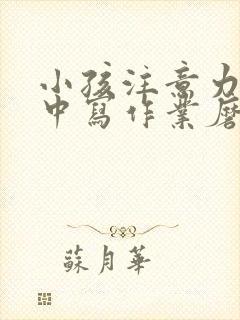 小孩注意力
中寫作業磨
蘇月華